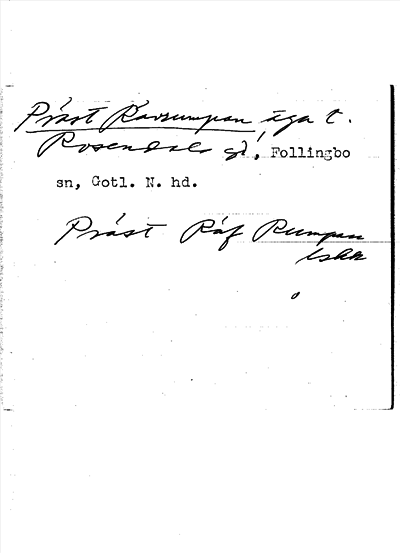 Präst Ravrumpan, äga t.
Rosendals gd, Follingbo
sn, Gotl. N. hd.
Präst Räf Rumpan